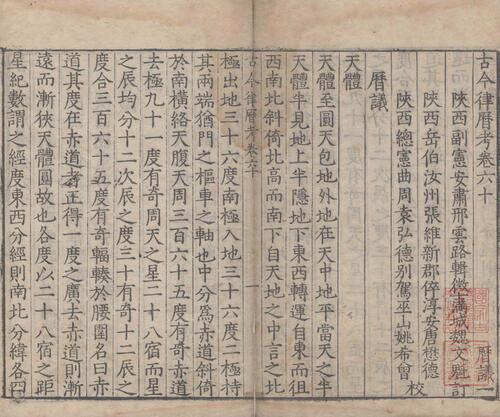 古今律曆考卷六十
曆議一
陝西副憲安肅邢雲路輯徵滿城魏文魁訂
陝西岳伯汝州張維新郡倅淳安唐懋德
陝西總憲曲周袁弘德別駕巫山姚希曾
校
曆議
天體
天體至圓天包地外地在天中地平當天之中
天體半見地上半隱地下東西轉運自東而徂
西南北斜倚北高而南下自天地之中言之北
古今律曆考卷六十
一
極出地三十六度南極入地三十六度二極持
其兩端猶門之樞車之軸也中分爲赤道斜倚
於南橫絡天腹天周三百六十五度有奇赤道
去極九十一度有奇周天之星二十八宿周天
之辰均分十二次辰之度三十有奇十二辰之
度合三百六十五度有奇輻輳於腰圍名曰赤
道其度在赤道者正得一度之廣去赤道則漸
遠而漸狹天體圓故也各度以二十八宿之距
星紀數謂之經度東西分經則南北分緯各四